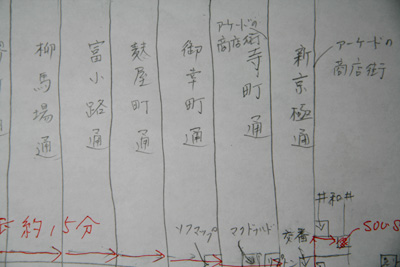 柳馬場通
富小路通
麩屋町通
御幸町通
アーケードの
商店街
寺町通
新京極通
アーケードの
商店街
井和井
約15分
ソフマップ
マクドナルド
交番
SOUS